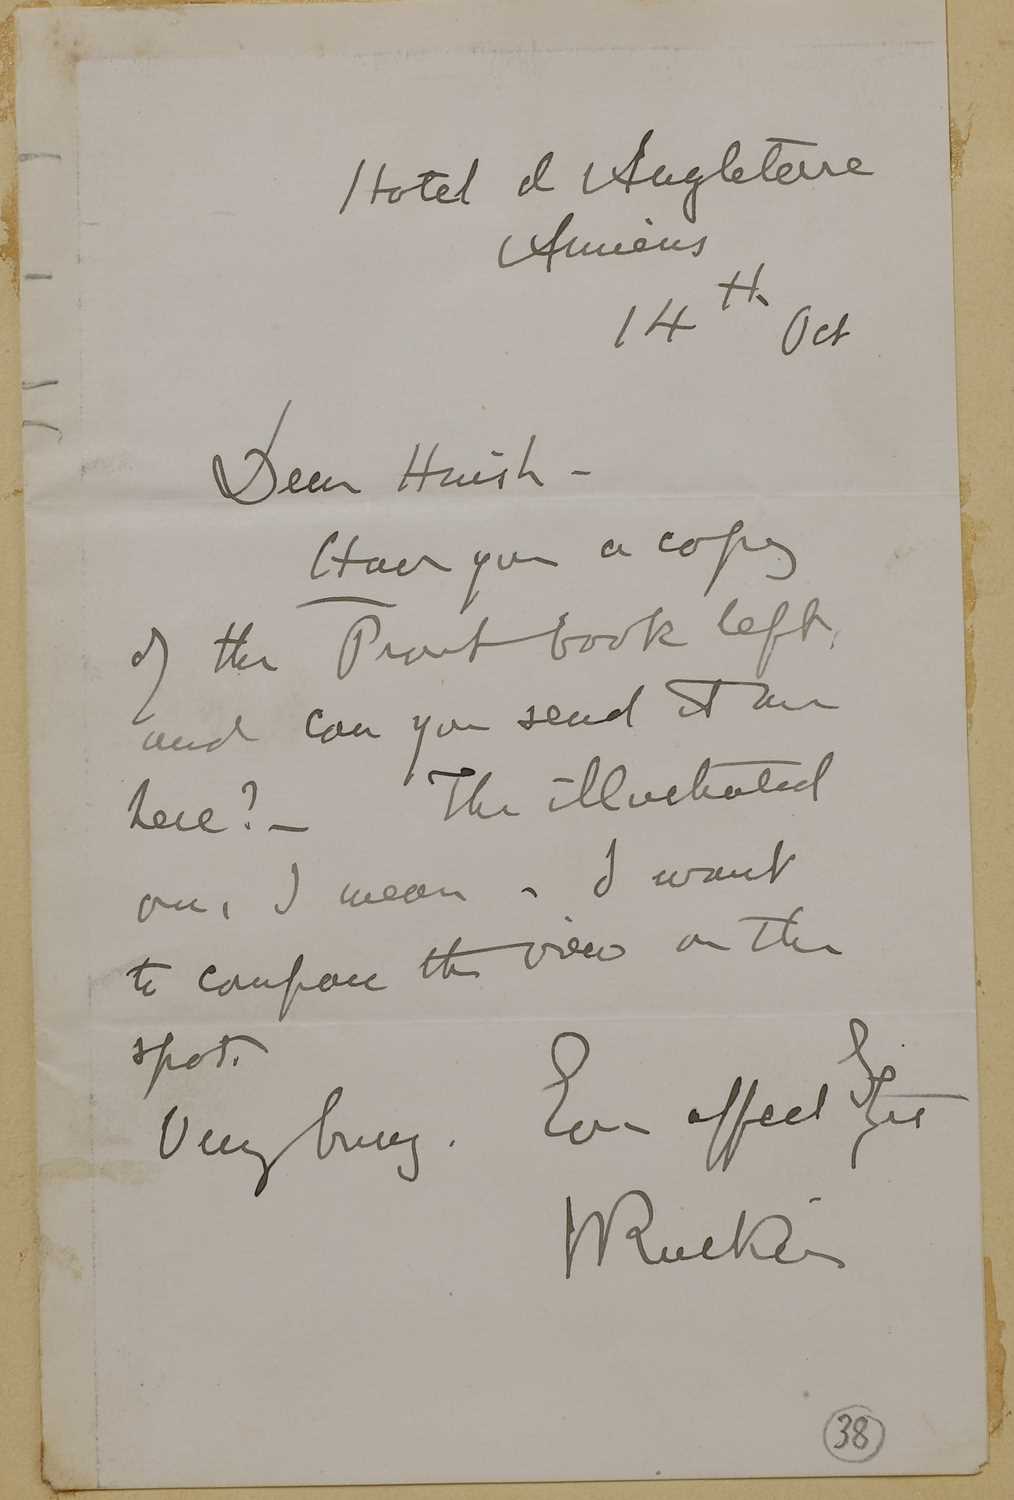 Hotel d Angleterre
Amiens
14th Oct
Dear Huish -
Have you a copy
of the Prout book left,
and can you send it me
here? - The illustrated
one, I mean - I want
to compare the view on the
spot.
Very busy. Ever affectly Yrs
JRuskin
38